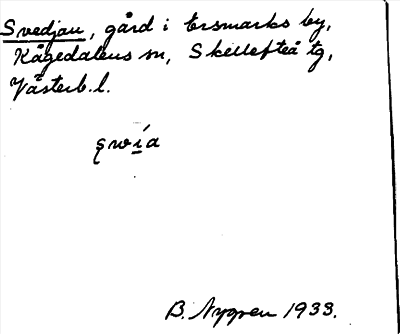 Svedjan, gård i Ersmarks by,
Kågedalens sn, Skellefteå tg,
Västerb. l.
B. Nygren 1933.